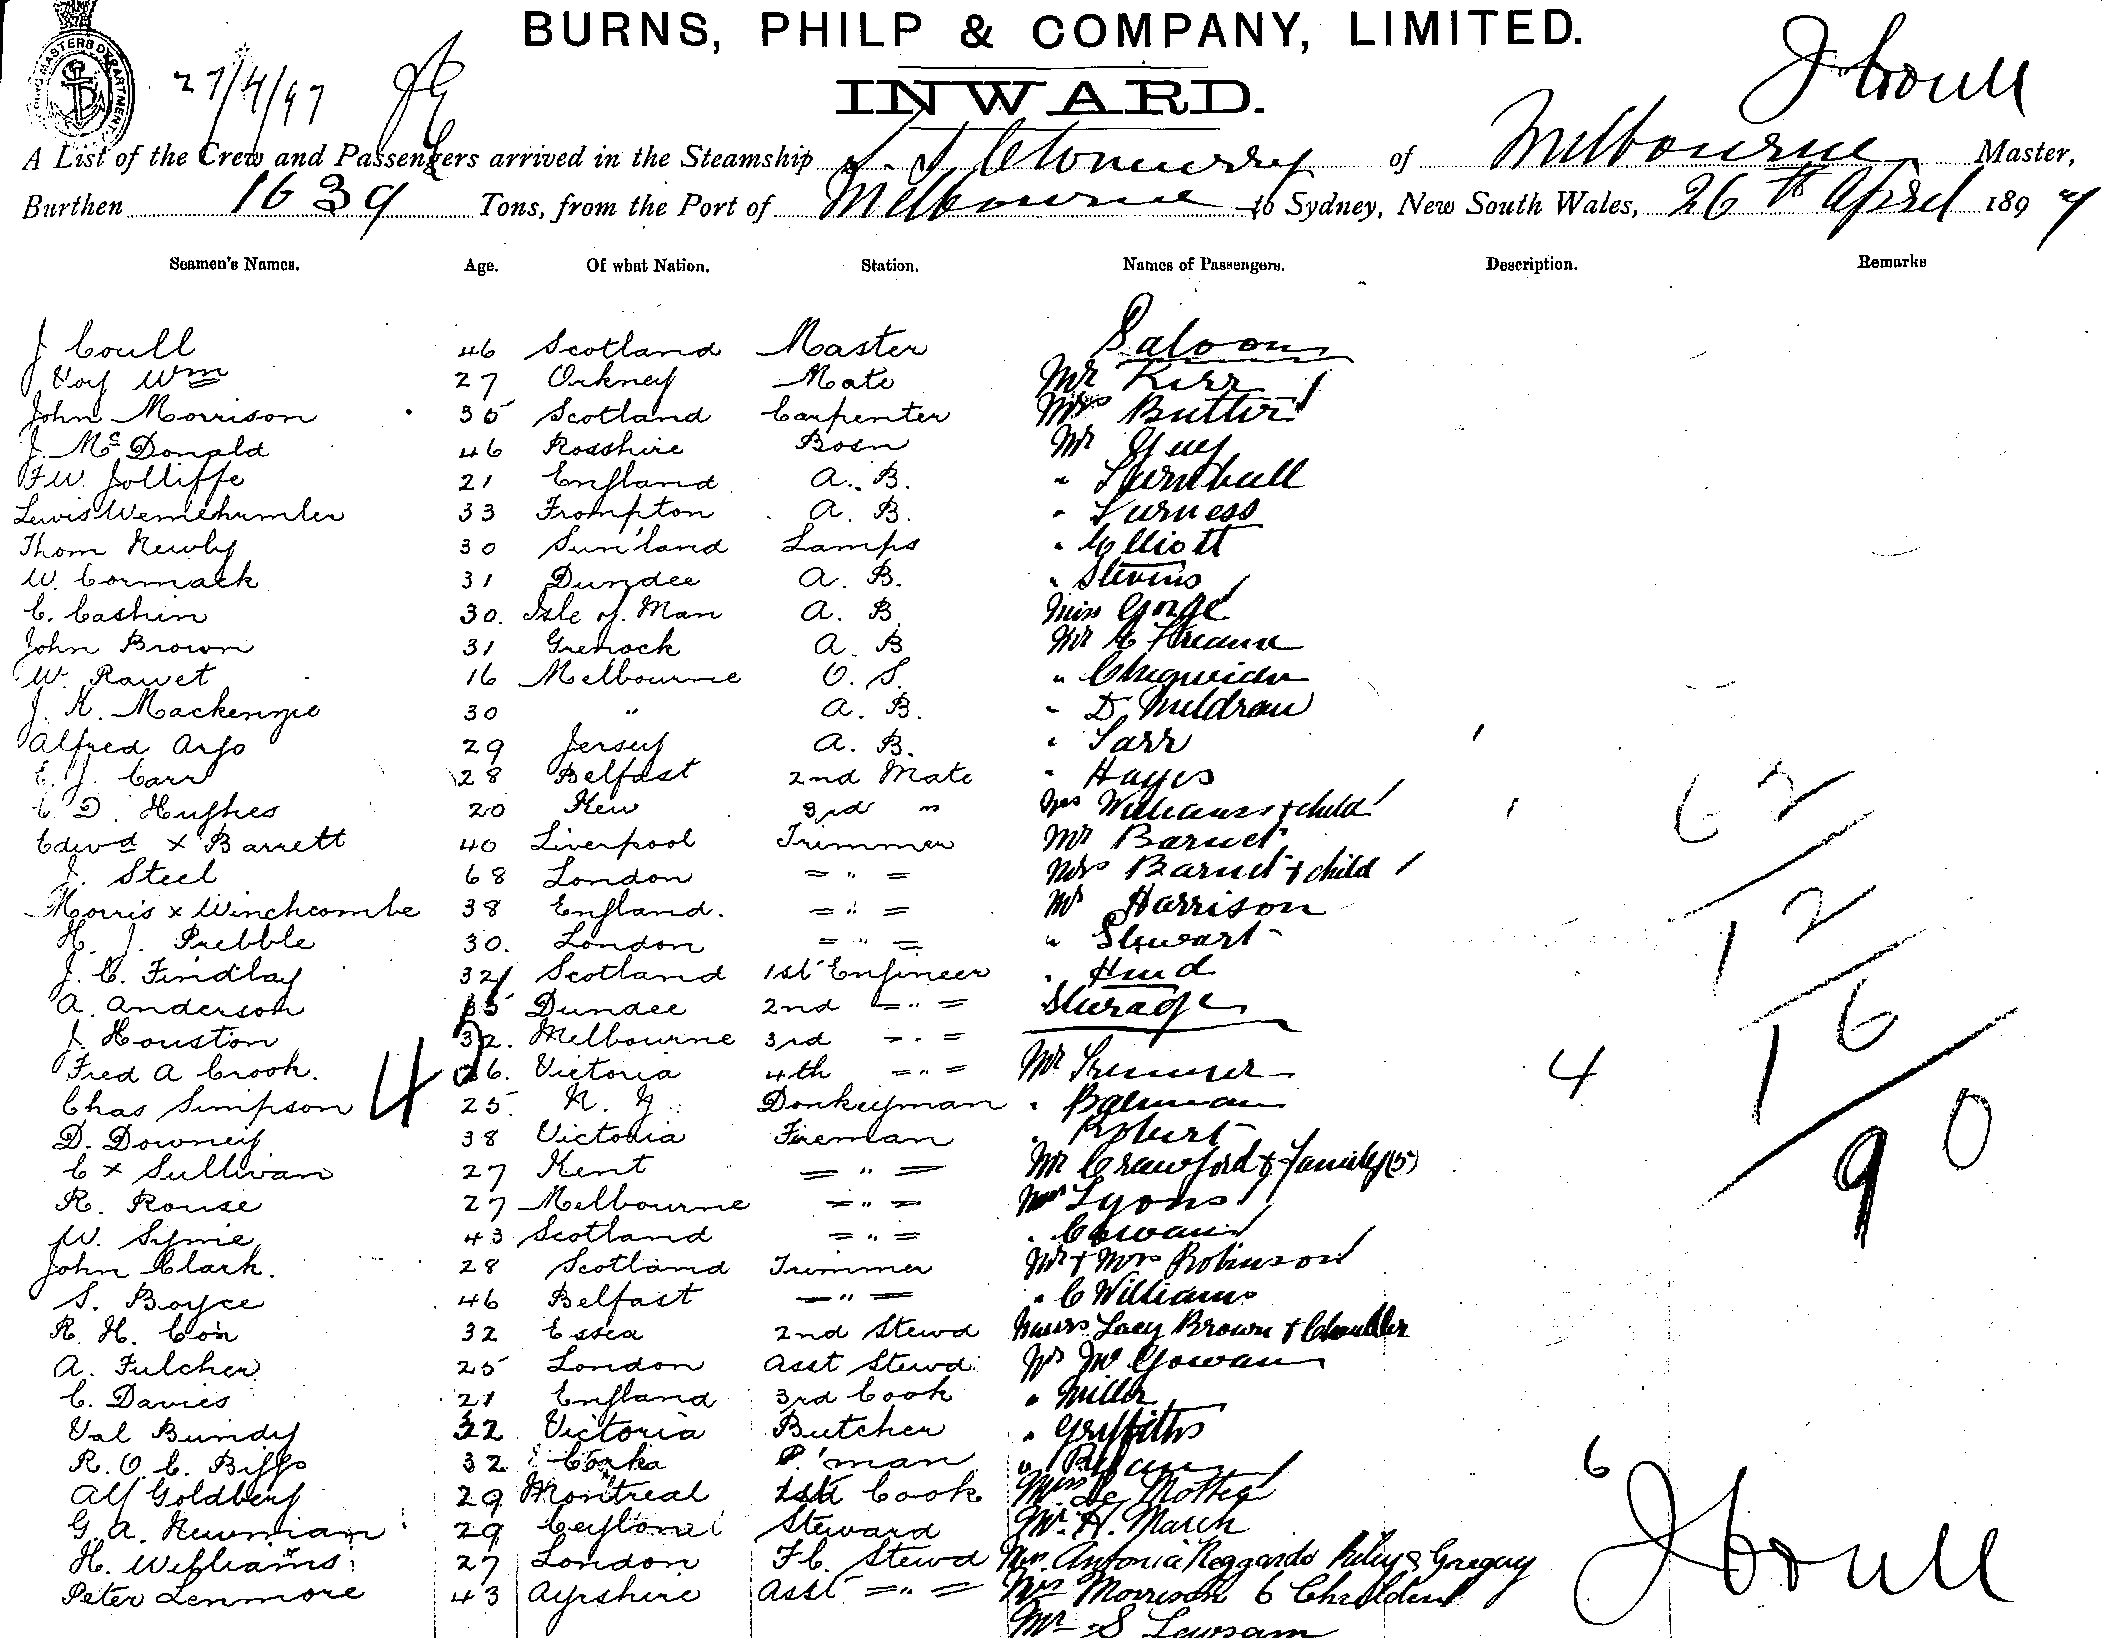 BURNS, PHILP & COMPANY, LIMITED.
MASTERS DEPARTMENT
27/4/97
INWARD.
J Coull
A List of the Crew and Passengers arrived in the Steamship of Melbourne Master,
Burthen 1639 Tons, from the Port of Melbourne to Sydney, New South Wales, 26th April 1897
Seamen's Names. Age. Of what Nation. Station. Names of Passengers. Description. Remarks
J Coull 46 Scotland Master Saloon
Voy Wm 27 Orkney Mate Mr Kerr
John Morrison 35 Scotland Carpenter Mrs Butter
J. McDonald 46 Rosshire Bosn Mr Guy
F.W. Jolliffe 21 England A. B. " Turnbull
Lewis 33 Frompton A. B. " Furness
Thom Newby 30 Sun'land Lamps " Elliott
W. Cormack 31 Dundee A. B. " Stevens
C. Cashin 30. Isle of Man A. B. Miss George
John Brown 31 Grenock A. B Mr
W. Rawet 16 Melbourne O. S. "
J. K. Mackenzie 30 " A. B. " D. Meldrau
Alfred Argo 29 Jersey A. B. " Sarr
E. J. Carr 28 Belfast 2nd Mate " Hayes
C. D. Hughes 20 Kew 3rd " Mrs Williams & child
Edwd x Barrett 40 Liverpool Trimmer Mr Barnet
J. Steel 68 London = " = Mrs Barnet & child
Morris x Winchcombe 38 England. = " = Mr Harrison
H. J. Prebble 30. London = " = " Stewart
J. C. Findlay 32 Scotland 1st Engineer " Hind
A. Anderson 35 Dundee 2nd = " = Steerage
J. Houston 32. Melbourne 3rd = " =
Fred A Crook. 26. Victoria 4th = " = Mr
Chas Simpson 25. N. Z. Donkeyman " Bateman
D. Downey 38 Victoria Fireman " Robert
C x Sullivan 27 Kent = " = Mr Crawford & family (5)
R. Rouse 27 Melbourne = " = Mrs Lyons
W. Syme 43 Scotland = " = " Cowan
John Clark. 28 Scotland Trimmer Mr & Mrs Robinson
S. Boyce 46 Belfast = " = " C Williams
R. H. Con 32 Essex 2nd Stewd Messrs Lacy Brown & Chandler
A. Fulcher 25 London Asst Stewd. Mr McGowan
C. Davies 21 England 3rd Cook " Miller
Val Bundy 32 Victoria Butcher " Griffiths
R. O. C. Biggs 32 P.'man " Ryan
Alf Goldberg 29 Montreal 1st Cook Miss
G. A. Newman 29 Ceylon Steward Mr. H. March
H. Williams 27 London F.C. Stewd Mrs. Antonia Reggardo Riley & Gregory
Peter Lenmore 43 Ayrshire Asst = " = Mrs Morrison 6 Children
Mr S Lewsam
4
4
62
12
16
90
6
J Coull